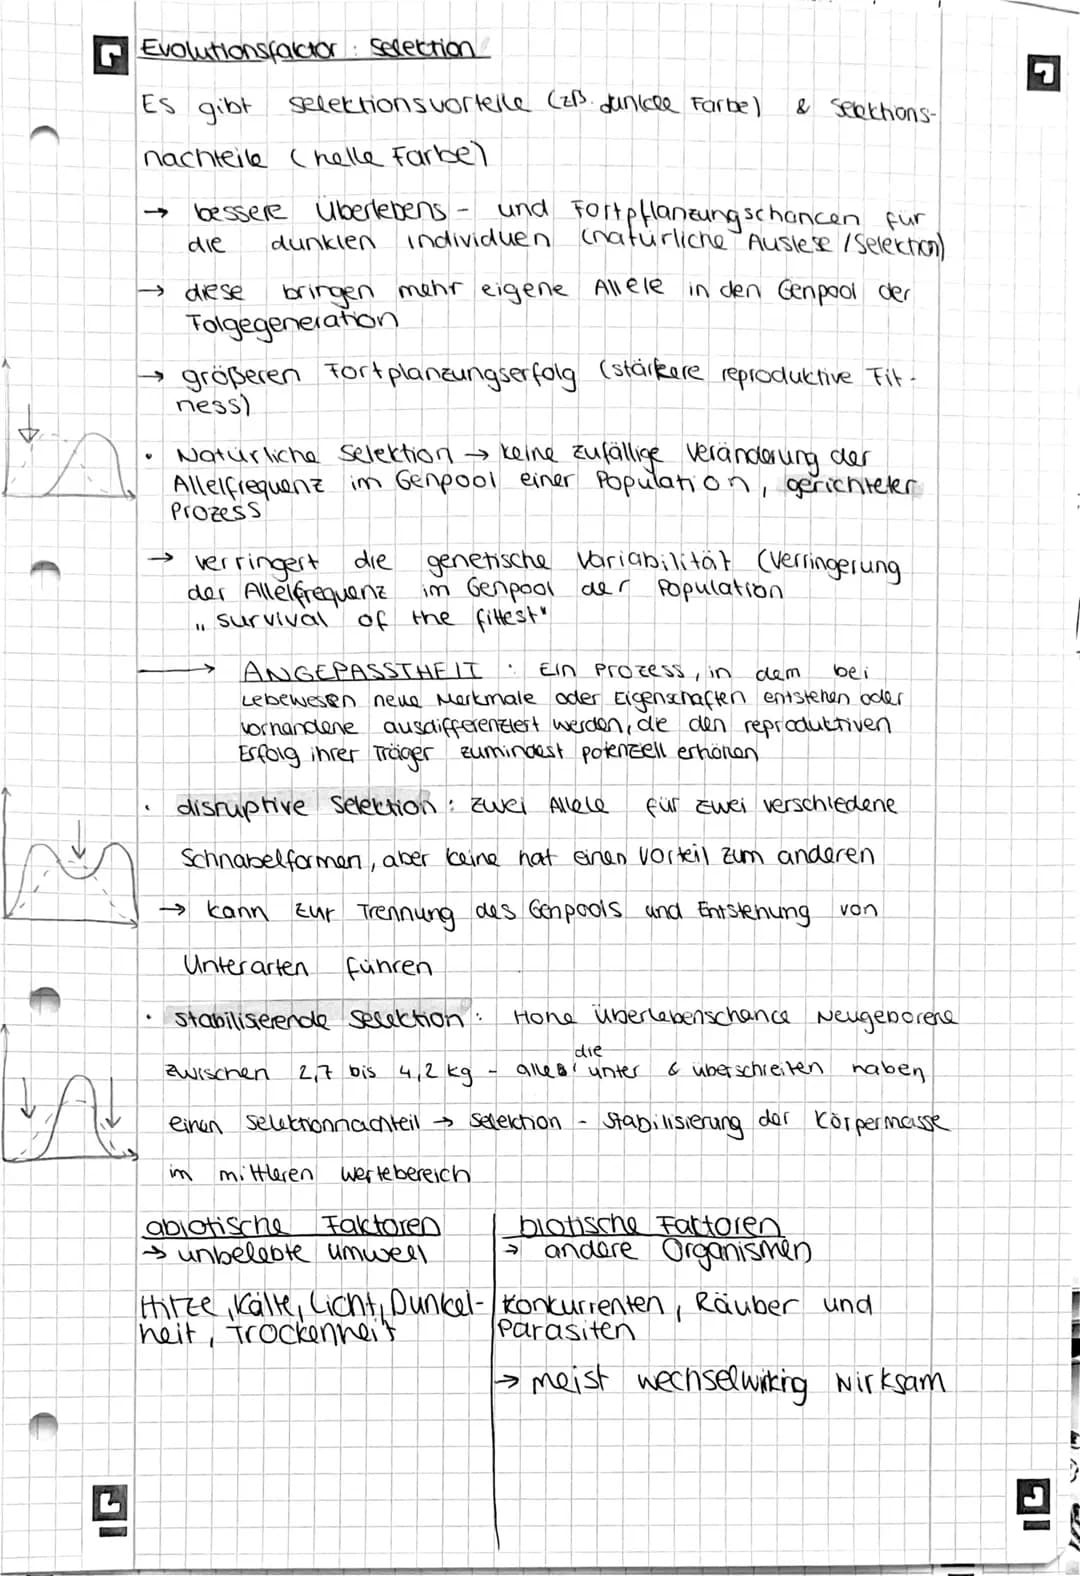 Evolutionsfaktor : Selektion
Es gibt Selektionsvorteile (zB. dunkle Farbe) & Selektions-
nachteile (helle Farbe)
→ bessere Überlebens- und Fortpflanzungschancen für
die dunklen Individuen (natürliche Auslese / Selektion)
→ diese bringen mehr eigene Allele in den Genpool der
Folgegeneration
→ größeren Fortplanzungserfolg (stärkere reproduktive Fit-
ness)
• Natürliche Selektion → keine zufällige Veränderung der
Allelfrequenz im Genpool einer Population, gerichteter
Prozess
→ verringert die genetische Variabilität (Verringerung
der Allelfrequenz im Genpool der Population
„survival of the fittest"
→ ANGEPASSTHEIT : Ein Prozess, in dem bei
Lebewesen neue Merkmale oder Eigenschaften entstehen oder
vorhandene ausdifferenziert werden, die den reproduktiven
Erfolg ihrer Träger zumindest potenziell erhöhen
• disruptive Selektion : zwei Allele für zwei verschiedene
Schnabelformen, aber keine hat einen Vorteil zum anderen
→ kann zur Trennung des Genpools und Entstehung von
Unterarten führen
• stabiliserende Selektion : Hohe Überlebenschance Neugeborene
zwischen 2,7 bis 4,2 kg - alle die unter & überschreiten haben
einen Selektionnachteil → Selektion - Stabilisierung der Körpermasse
im mittleren Wertebereich
abiotische Faktoren
→ unbelebte Umwelt
Hitze, Kälte, Licht, Dunkel-
heit, Trockenheit
biotische Faktoren
→ andere Organismen
Konkurrenten, Räuber und
Parasiten
→ meist wechselwirkig wirksam